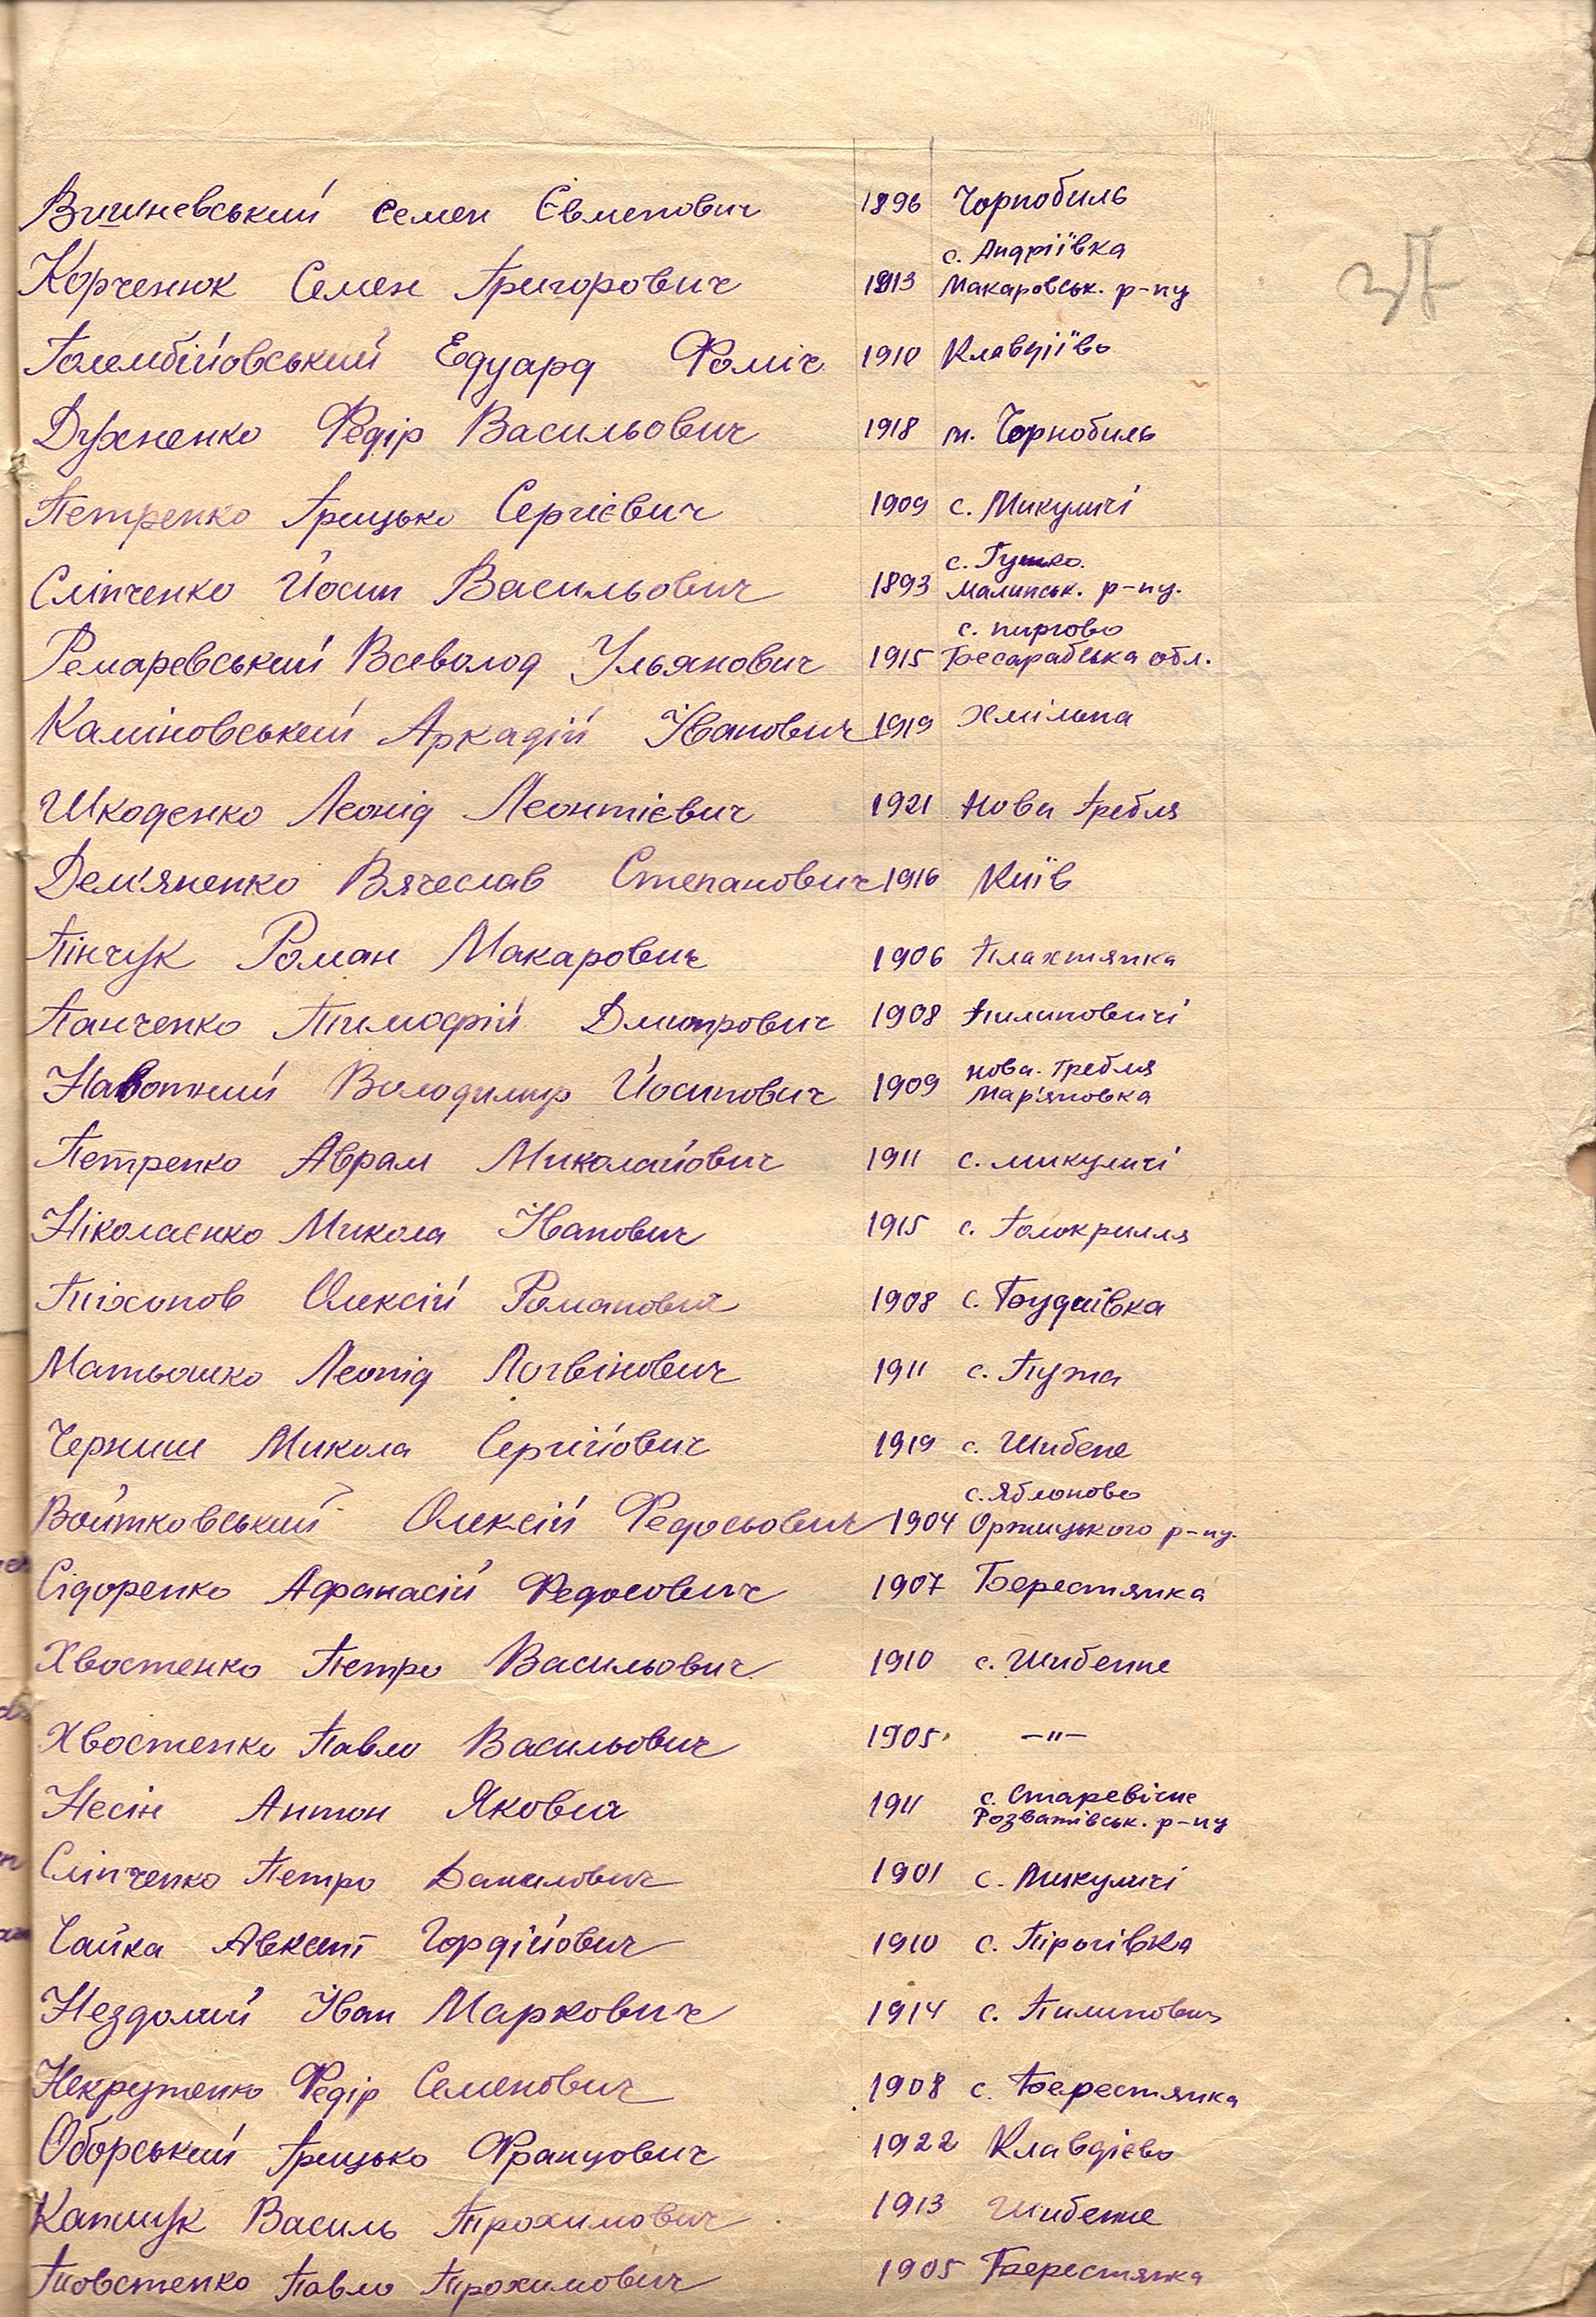 Вишневський Семен Євменович 1896 Чорнобиль
с. Андріївка
Корченюк Семен Григорович 1913 Макаровськ. р-ну
37
Голембійовський Едуард Фоміч 1910 Клавдіїво
Духненко Федір Васильович 1918 м. Чорнобиль
Петренко Грицько Сергієвич 1909 с. Микуличі
с. Гутко.
Сліпченко Йосип Васильович 1893 Малинськ. р-ну.
с. пиргово
Ремаревський Всеволод Ульянович 1915 Бесарабська обл.
Каміновський Аркадій Іванович 1919 Хмільна
Шкоденко Леонід Леонтієвич 1921 Нова Гребля
Дем'яненко Вячеслав Степанович 1916 Київ
Пінчук Роман Макарович 1906 Плахтянка
Панченко Тимофій Дмитрович 1908 Пилиповичі
нова. Гребля
Навотний Володимир Йосипович 1909 Мар'яновка
Петренко Аврам Миколайович 1911 с. микуличі
Ніколаєнко Микола Іванович 1915 с. Голокрилля
Тіхонов Олексій Романович 1908 с. Буднівка
Матьошко Леонід Логвінович 1911 с. Гута
Черниш Микола Сергійович 1919 с. Шибене
с. Яблоново
Войтковський Олексій Федосьович 1904 Оржицького р-ну.
Сідоренко Афанасій Федосович 1907 Берестянка
Хвостенко Петро Васильович 1910 с. Шибенне
Хвостенко Павло Васильович 1905 —"—
с. Старевічне
Несін Антон Яковл 1911 Розважівськ. р-ну
Сліпченко Петро Данилович 1901 с. Микуличі
Чайка Авксент Гордійович 1910 с. Пірогівка
Нездолий Іван Маркович 1914 с. Пилипович
Некрутенко Федір Семенович 1908 с. Берестянка
Оборський Грицько Францович 1922 Клавдієво
Капшук Василь Трохимович 1913 Шибенне
Товстенко Павло Трохимович 1905 Берестянка